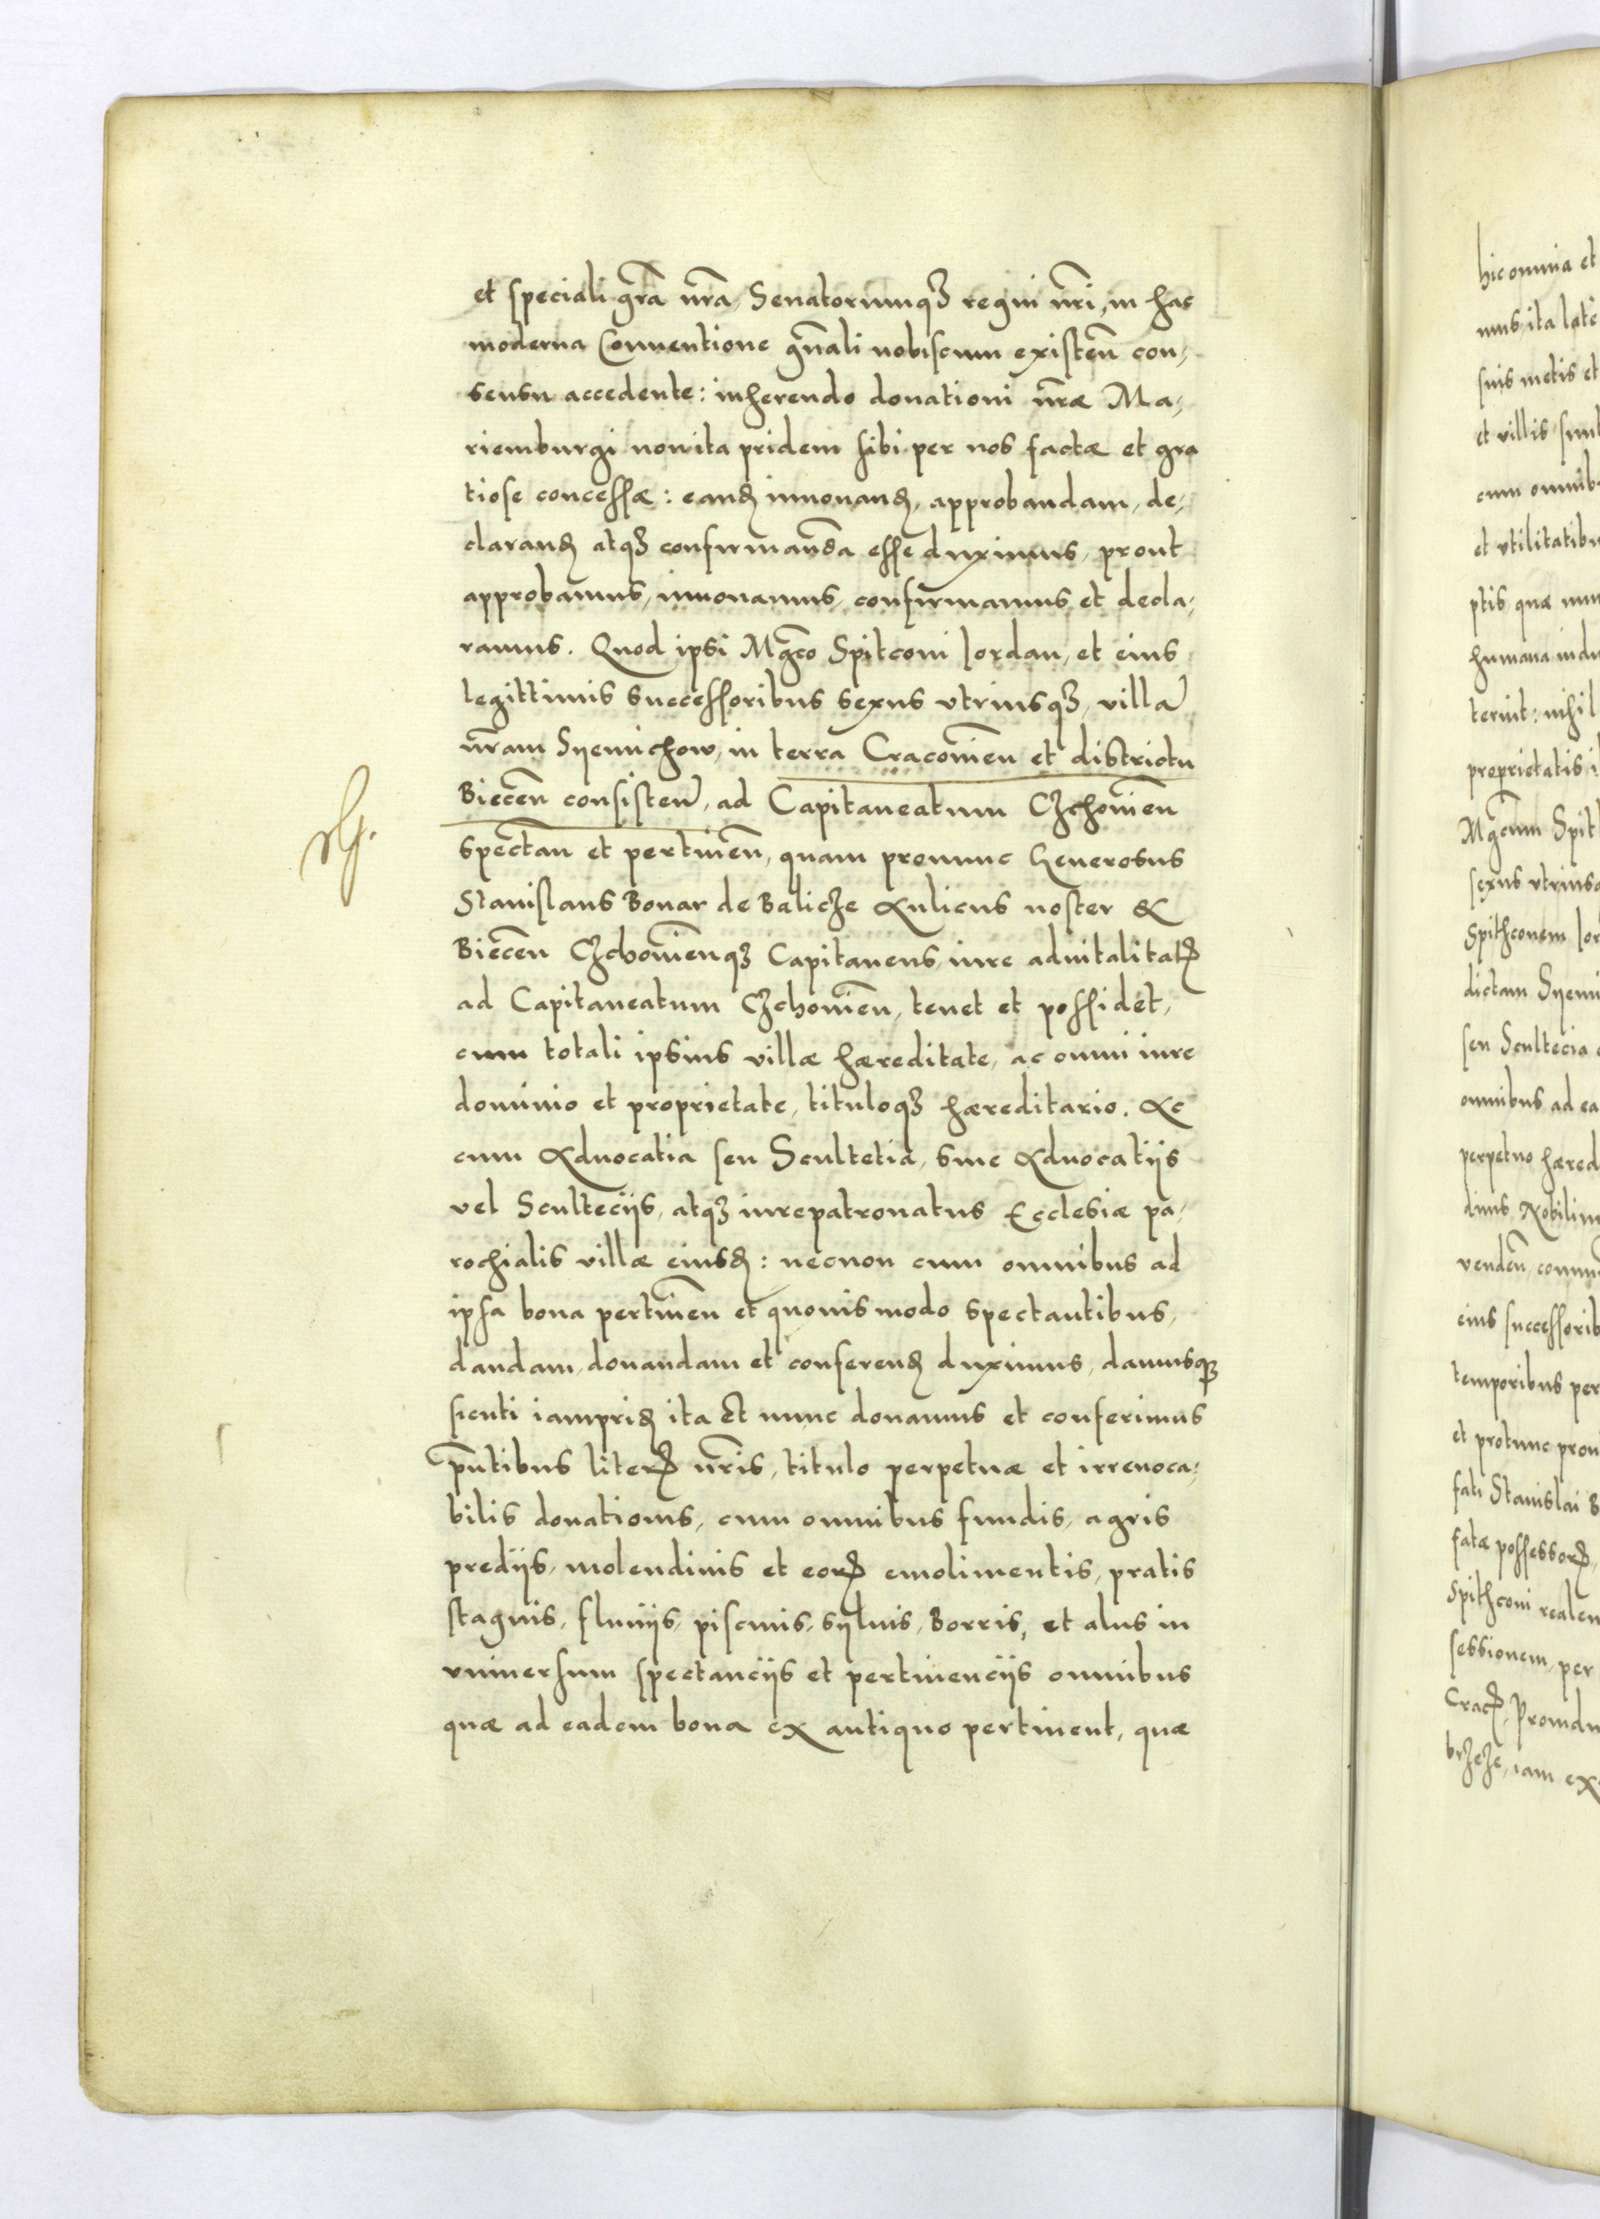 et speciali gr̄a nr̄a, Senatorumqȝ regni nr̄i, in hac
moderna Conventione gn̄ali nobiscum existen̄ con,
sensu accedente: inherendo donationi nr̄æ Ma,
riemburgi non ita pridem sibi per nos factæ et gra
tiose concessæ: eanđ innouanđ, approbandam, de,
claranđ atqȝ confirmandā esse duximus, prout
approbamus, innouamus, confirmamus et decla,
ramus. Quod ipsi Mgc̄o Spitconi Jordan, et eius
legittimis successoribus sexus vtriusqȝ, villā
nr̄am Syemichow, in terra Cracouien̄ et districtu
Biecen̄ consisten̄, ad Capitaneatum Czchouien̄
spectan̄ et pertinen̄, quam pronunc Generosus
Stanislaus Bonar de Balicze Aulicus noster &
Biecen̄ Czchouien̄qȝ Capitaneus, iure aduitalitatꝭ
ad Capitaneatum Czchouien̄, tenet et possidet,
cum totali ipsius villæ hæreditate, ac omni iure
dominio et proprietate, tituloqȝ hæreditario. Ac
cum Aduocatia seu Scultetia, siue Aduocatijs
vel Sculteciis, atqȝ iurepatronatus Ecclesiæ pa,
rochialis villæ eiusđ: necnon cum omnibus ad
ipsa bona pertinen̄ et quouis modo spectantibus,
dandam, donandam et conferenđ duximus, damusqȝ
sicuti iampriđ ita et nunc donamus et conferimus
pn̄tibus literꝭ nr̄is, titulo perpetuæ et irreuoca,
bilis donationis, cum omnibus fundis, agris
prediis, molendinis et eorꝭ emolimentis, pratis
stagnis, fluuijs, piscinis, syluis, Borris, et alijs in
vniuersum spectancijs et pertinencijs omnibus
quæ ad eadem bona ex antiquo pertinent, quæ
hic omnia et
suis metis et
et villis
cum omnib
et vtilitatibu
ptis, quæ nun
humana indu
terint: nihil
proprietatis i
Mgc̄um Spit
sexus vtriusq
Spithconem Jor
dictam Syemi
seu Scultecia
omnibus ad ea
perpetuo hæred
vendēn
eius successorib
temporibus per
et protunc
fati Stanislai B
fatæ possessorꝭ,
Spithconi realem
sessionem, per
iam ex